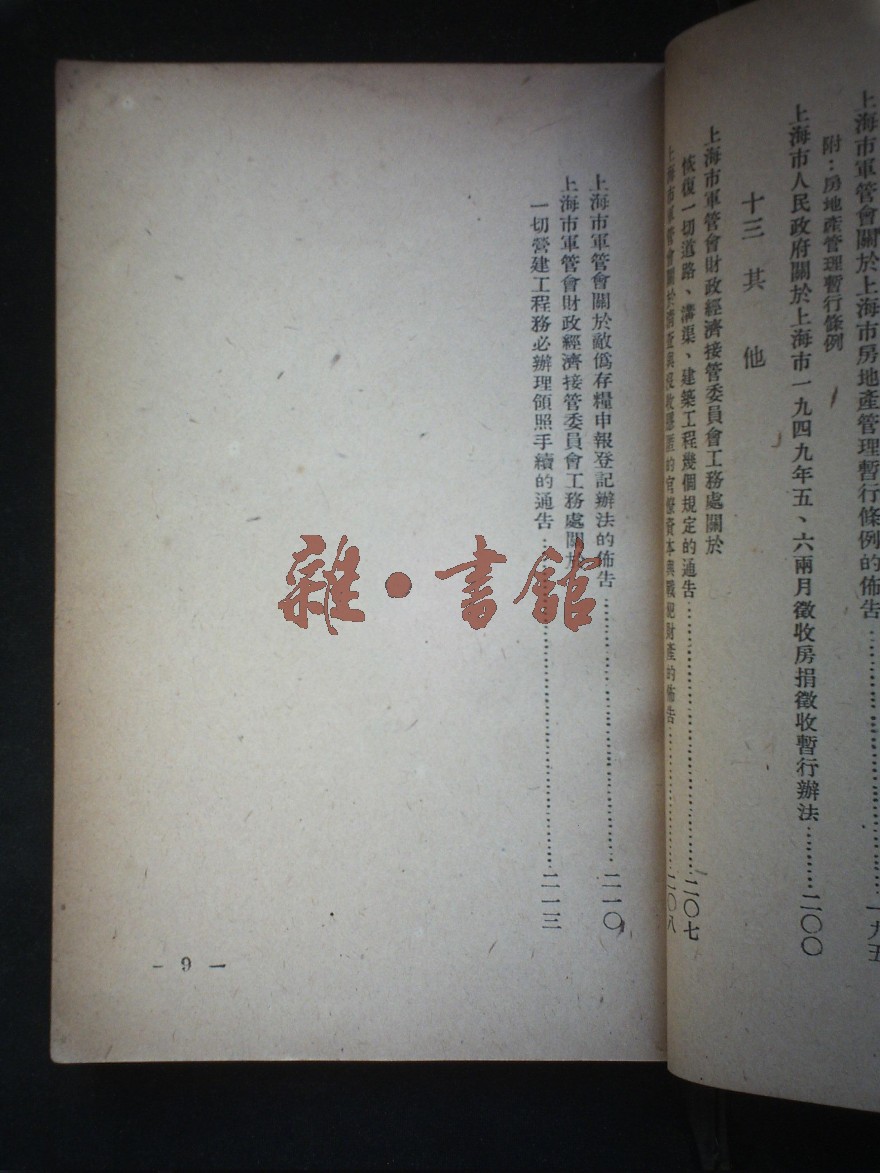 上海市軍管會關於上海市房地產管理暫行條例的佈告……………一九五
附：房地產管理暫行條例
上海市人民政府關於上海市一九四九年五、六兩月徵收房捐徵收暫行辦法………二〇〇
十三 其 他
上海市軍管會財政經濟接管委員會工務處關於
恢復一切道路、溝渠、建築工程幾個規定的通告……………二〇七
上海市軍管會關於清查與沒收隱匿的官僚資本與戰犯財產的佈告……………二〇八
上海市軍管會關於敵僞存糧申報登記辦法的佈告……………二一〇
上海市軍管會財政經濟接管委員會工務處關於
一切營建工程務必辦理領照手續的通告……………二一三
— 9 —
雜·書館